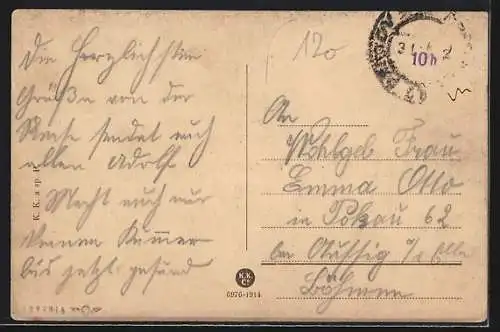 Die Herzlichsten
Grüße von der
Reise sendet euch
allen Adolf
Macht euch nur
keinen Kummer
bis jetzt gesund
120
10h
An
Wohlgeb Frau
Emma Otto
in Pokau 62
bei Aussig a/d Elbe
Böhmen
K. K.
Co
6976-1914